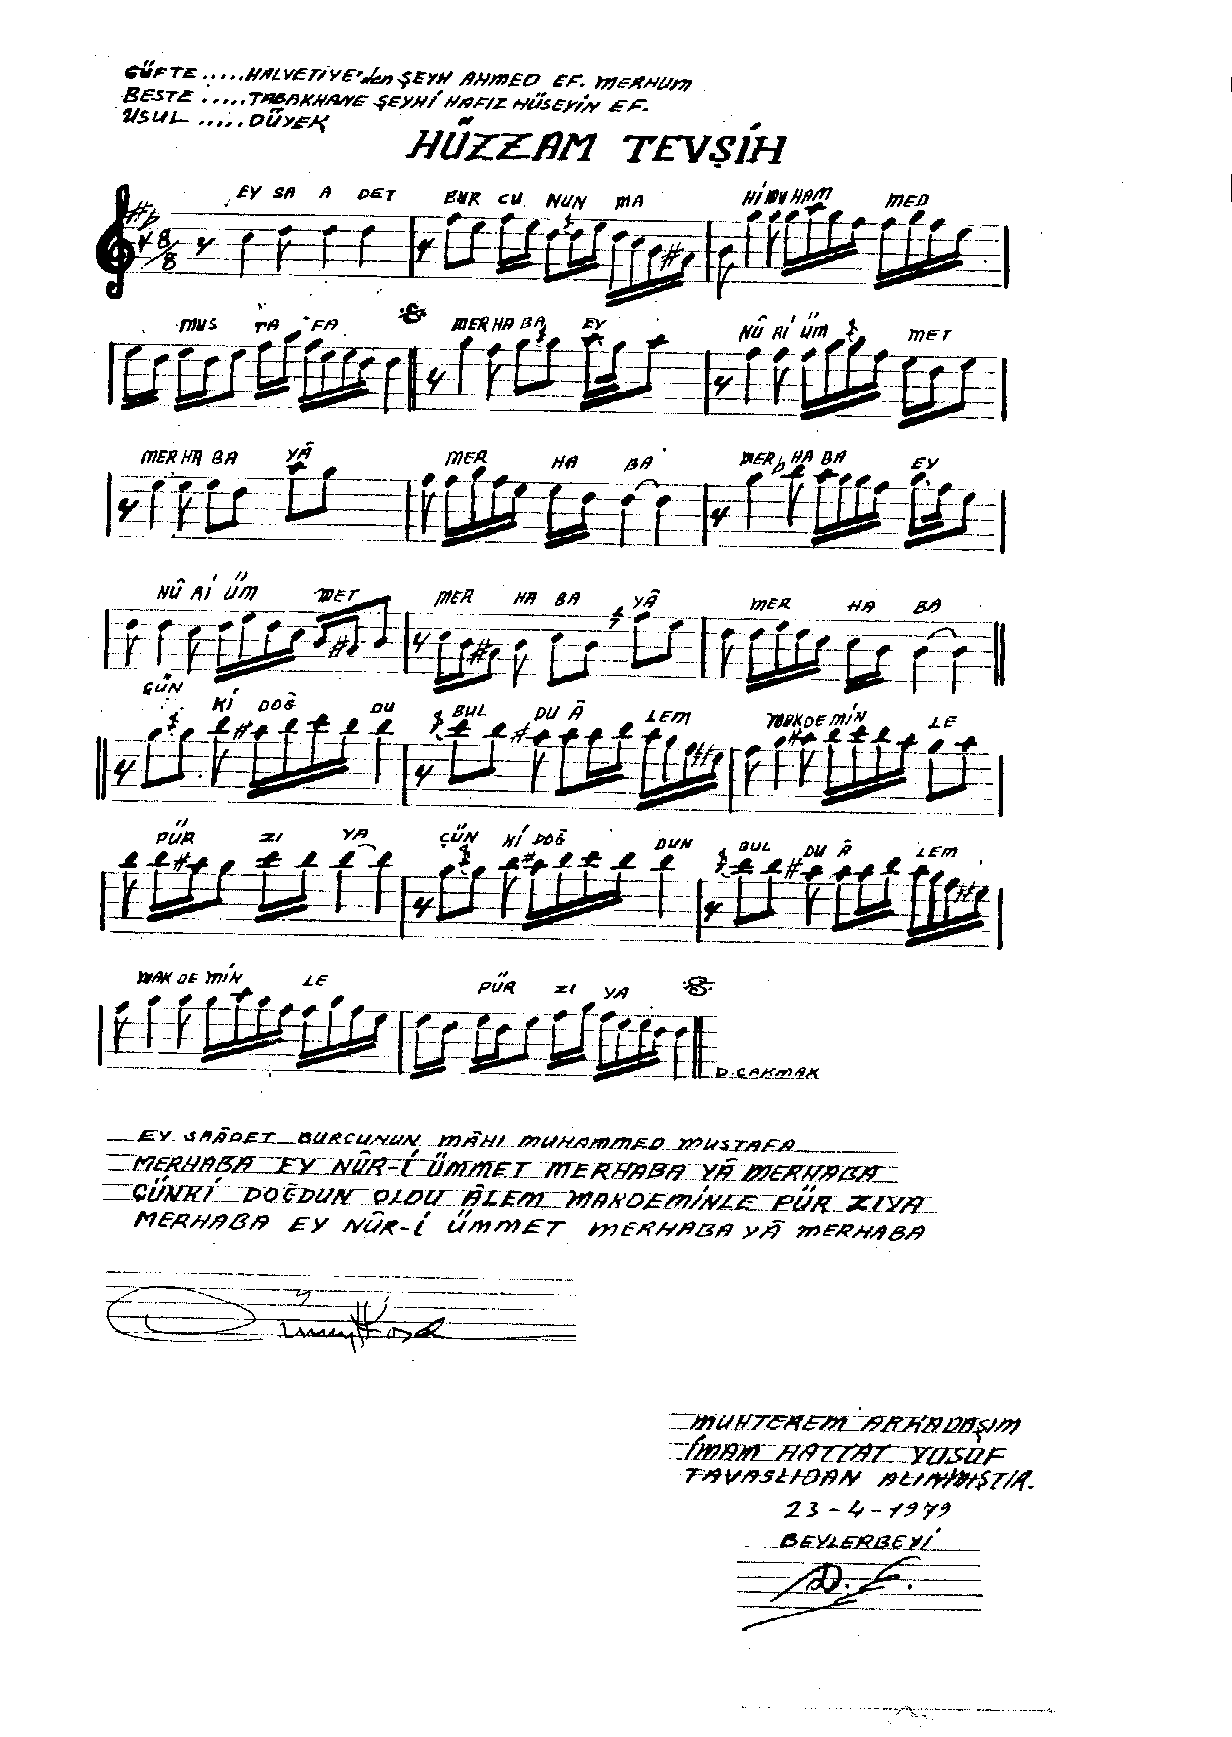 GÜFTE .....HALVETİYE'den ŞEYH AHMED EF. MERHUM
BESTE .....TABAKHANE ŞEYHİ HAFIZ HÜSEYİN EF.
USUL .....DÜYEK
HÜZZAM TEVŞİH
EY SA A DET BUR CU NUN MA Hİ MU HAM MED
8/8
MUS TA FA MERHABA EY NÛ Rİ ÜM MET
MER HA BA YÂ MER HA BA MER HA BA EY
NÛ Rİ ÜM MET MER HA BA YÂ MER HA BA
ÇÜN Kİ DOĞ DU BUL DU Â LEM MAKDEMİN LE
PÜR Zİ YA ÇÜN Kİ DOĞ DUN BUL DU Â LEM
MAK DE MİN LE PÜR Zİ YA
D.ÇAKMAK
EY SAÂDET BURCUNUN MÂHI MUHAMMED MUSTAFA
MERHABA EY NÛR-İ ÜMMET MERHABA YÂ MERHABA
ÇÜNKİ DOĞDUN OLDU ÂLEM MAKDEMİNLE PÜR ZIYA
MERHABA EY NÛR-İ ÜMMET MERHABA YÂ MERHABA
MUHTEREM ARKADAŞIM
İMAM HATTAT YUSUF
TAVASLIDAN ALINMIŞTIR.
23-4-1979
BEYLERBEYİ
D.Ç.